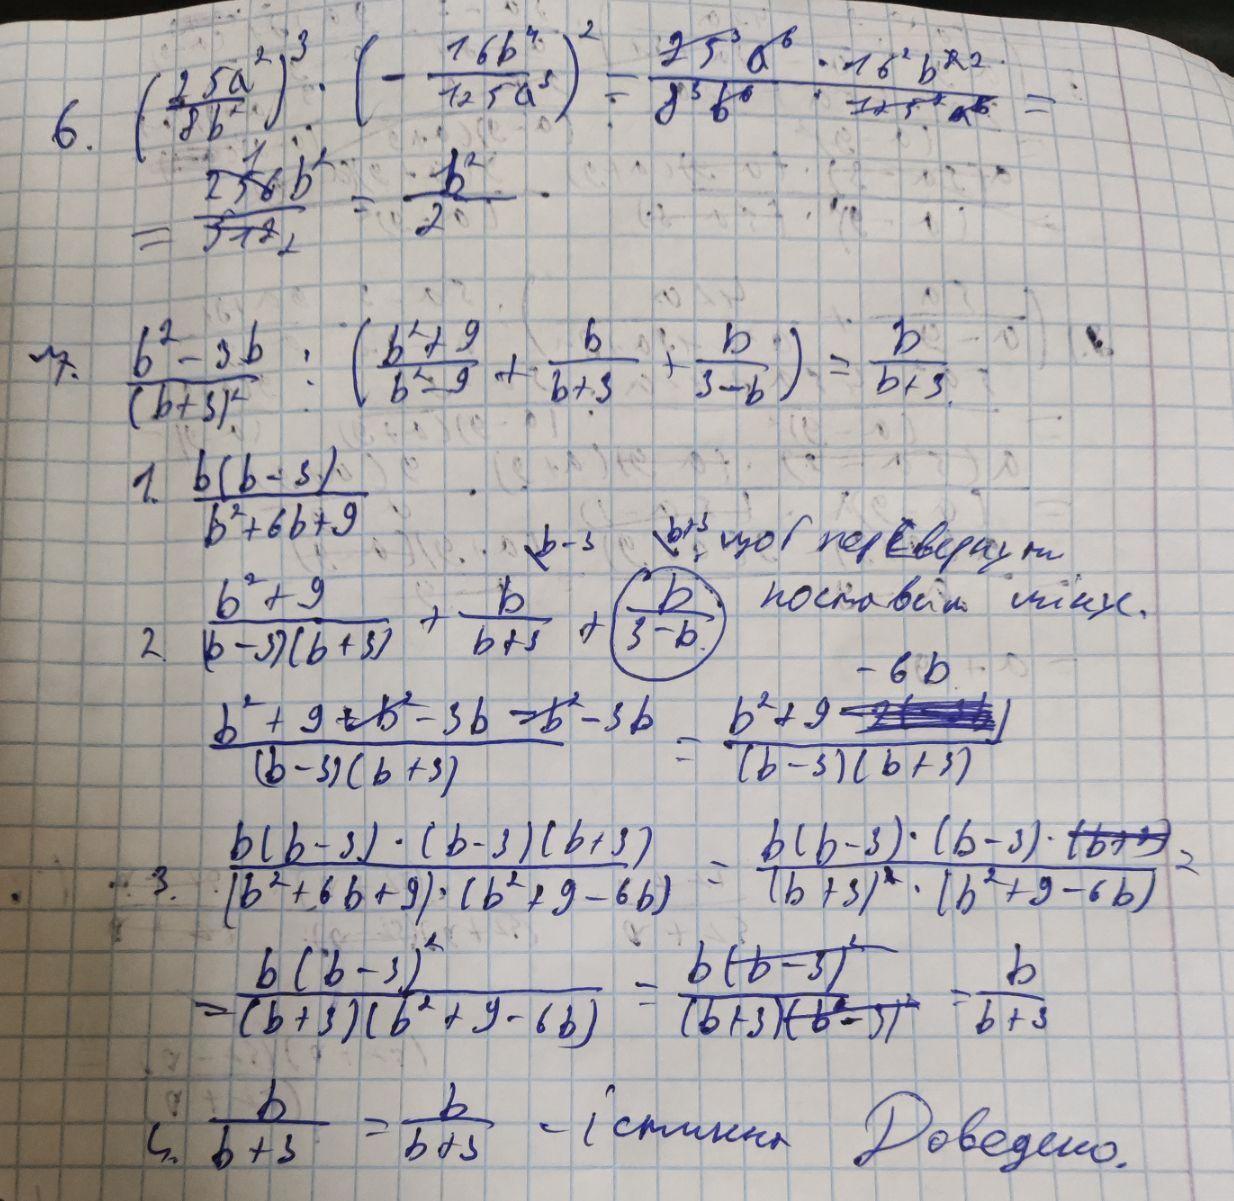 6. (25a²/8b²)³ · (-16b⁴/125a³)² = 25³a⁶ · 16²b⁸/8³b⁶ · 125²a⁶ =
= 256b²/512 = b²/2
7. b²-3b/(b+3)² : (b²+9/b²-9 + b/b+3 + b/3-b) = b/b+3.
1. b(b-3)/b²+6b+9
b-3 b+3 щоб перевернути
2. b²+9/(b-3)(b+3) + b/b+3 + b/3-b поставим мінус.
-6b
b²+9+b²-3b-b²-3b/(b-3)(b+3) = b²+9/(b-3)(b+3)
3. b(b-3)·(b-3)(b+3)/(b²+6b+9)·(b²+9-6b) = b(b-3)·(b-3)·(b+3)/(b+3)²·(b²+9-6b) =
= b(b-3)²/(b+3)(b²+9-6b) = b(b-3)²/(b+3)(b-3)² = b/b+3
4. b/b+3 = b/b+3 - істинна Доведено.